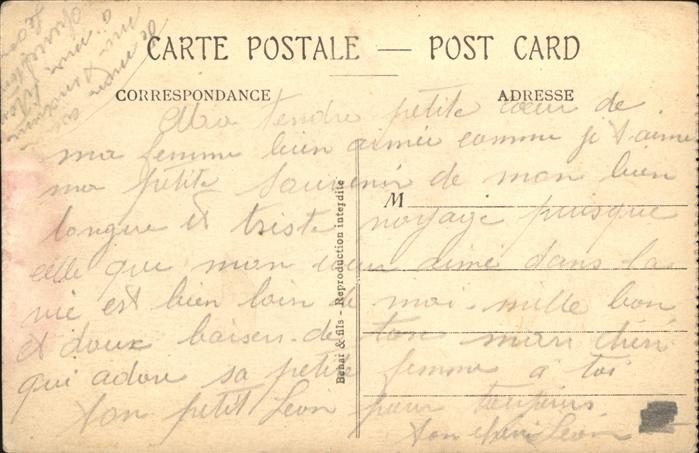 CARTE POSTALE — POST CARD
CORRESPONDANCE
ADRESSE
Ma tendre petite cœur de
ma femme bien aimée comme je t'aime
ma petite Souvenir de mon bien
M
longue et triste voyage puisque
celle que mon cœur aimé dans la
vie est bien loin de moi - mille bon
et doux baiser de ton mari chéri
qui adore sa petite femme à toi
ton petit Léon pour toujours
ton chéri Léon
Behar & fils - Reproduction interdite